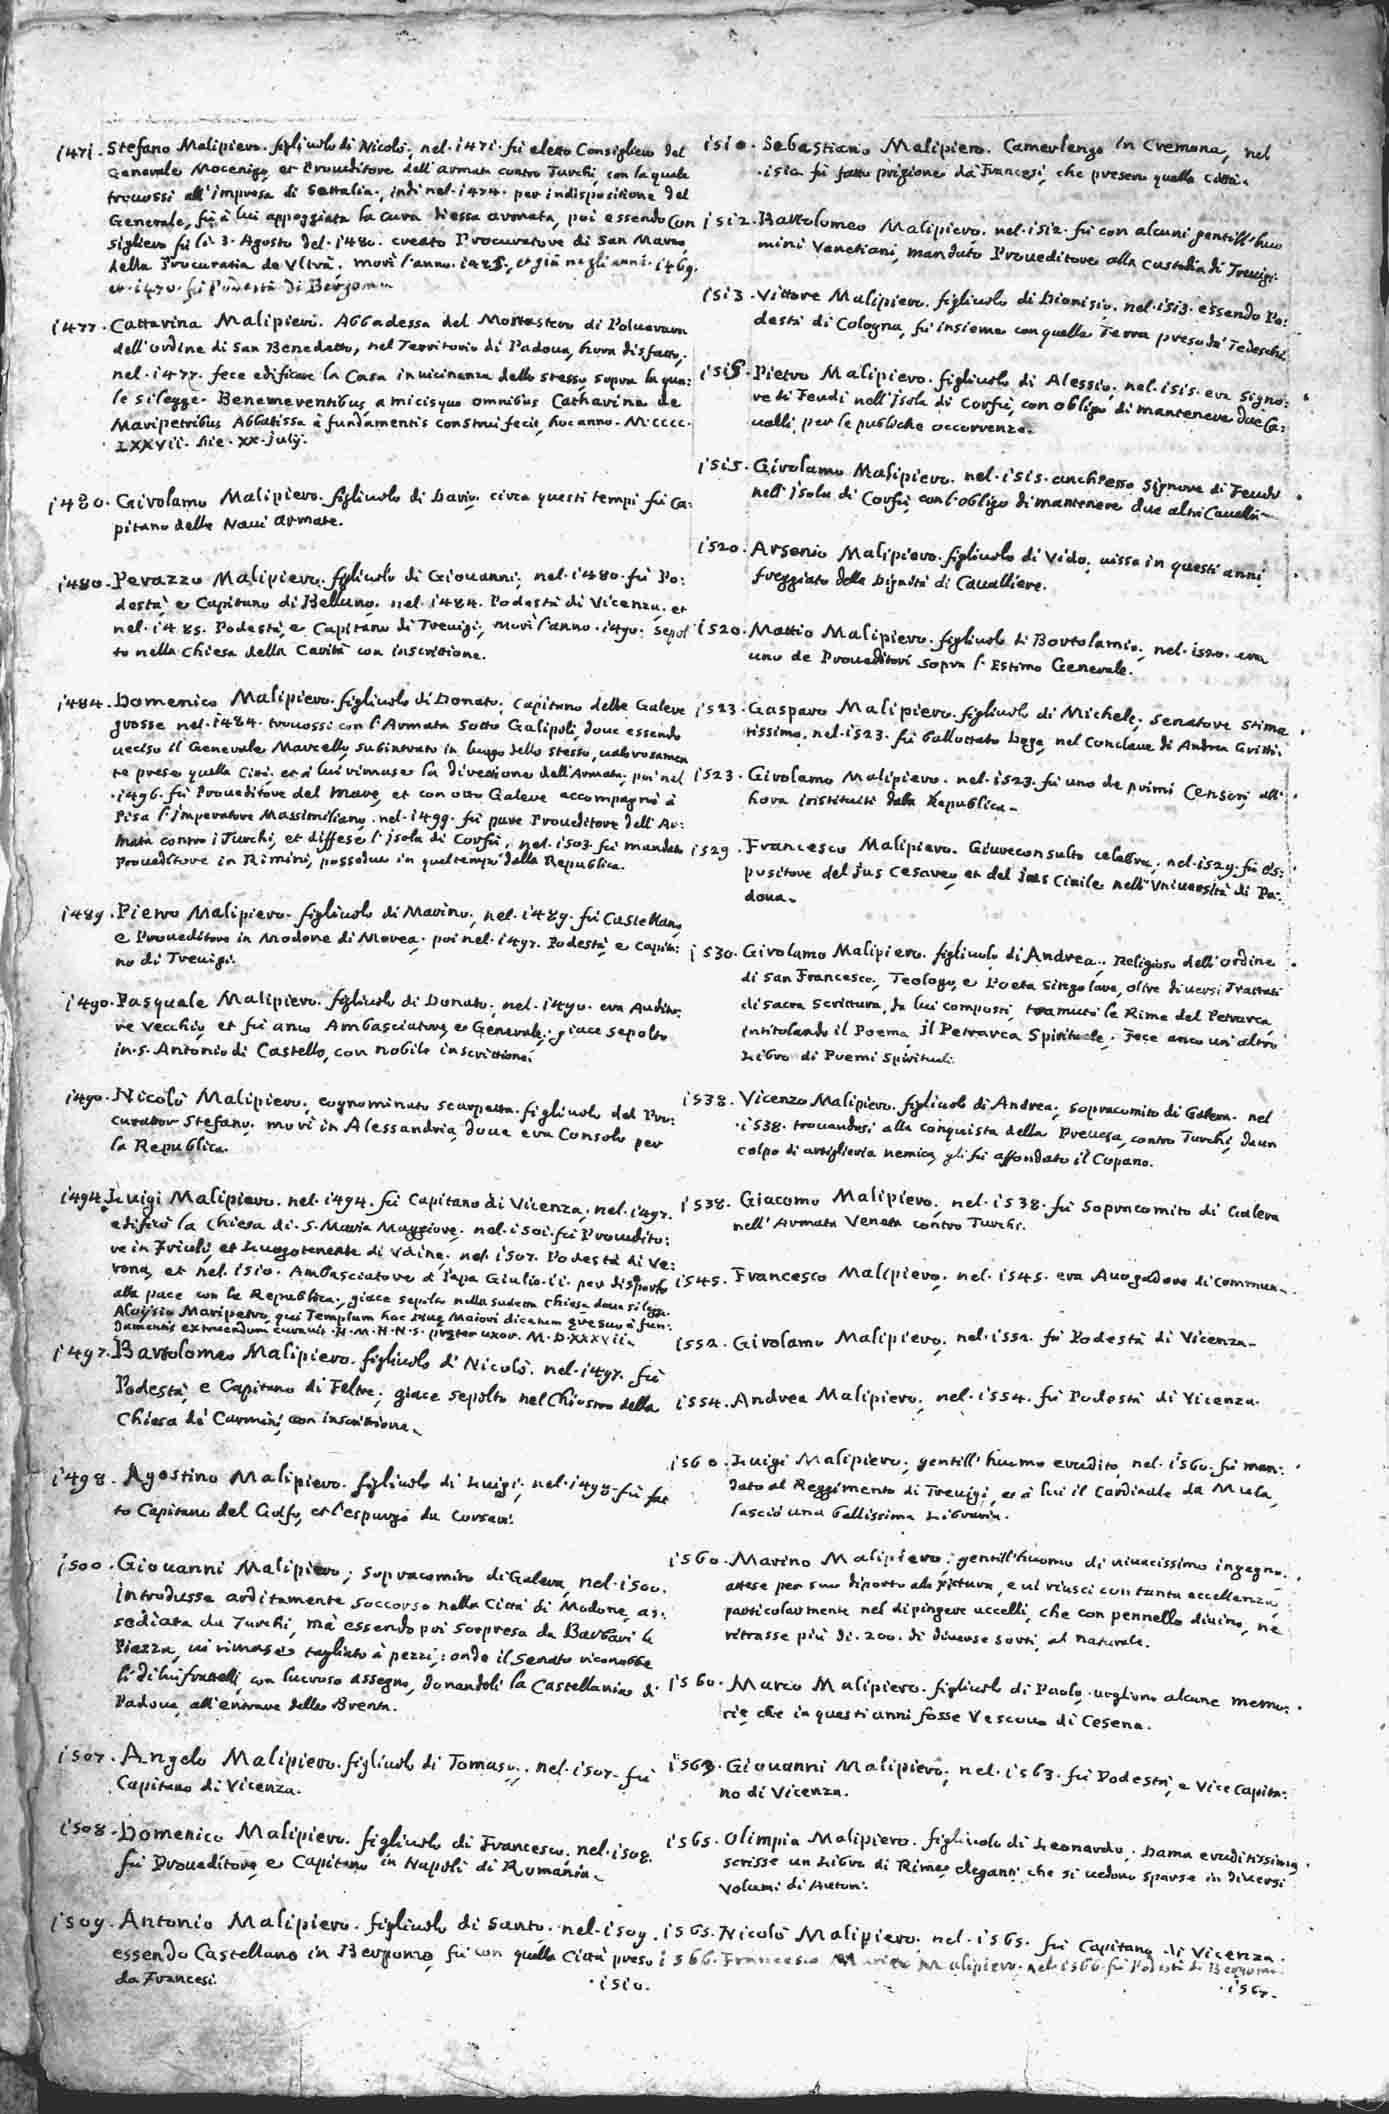 1471. Stefano Malipiero. figliuolo di Nicolò; nel. 1471. fù eletto Consigliero del
Generale Mocenigo, et Proueditore dell'armata contro Turchi, con la quale
trouossi all'impresa di Settalia; indi nel. 1474. per indispositione del
Generale, fù à lui appoggiata la cura di essa armata, poi essendo Con
sigliero fù li. 3. Agosto del. 1480. creato Procuratore di San Marco
della Procuratia de Vltrà; morì l'anno et già negli anni. 1469.
et. 1470. fù Podestà di Bergomo
1477. Cattarina Malipieri. Abbadessa del Monastero di Poluerara
dell'ordine di San Benedetto, nel Territorio di Padoua, hora disfatto;
nel. 1477. fece edificare la Casa in uicinanza dello stesso, sopra la qua:
le si legge. Benemerentibus, amicisque omnibus Catharina de
Maripetribus Abbatissa à fundamentis construi fecit, hoc anno. M.CCCC.
LXXVII. die. XX. july.
1480. Girolamo Malipiero. figliuolo di Dario; circa questi tempi fù Ca:
pitano delle Naui armate.
1480. Perazzo Malipiero. figliuolo di Giouanni; nel. 1480. fù Po:
destà, e Capitano di Belluno; nel. 1484. Podestà di Vicenza, et
nel. 1485. Podestà, e Capitano di Treuigi; morì l'anno. 1490. sepol
to nella Chiesa della Carità con inscrittione.
1484. Domenico Malipiero. figliuolo di Donato; Capitano delle Galere
grosse nel. 1484. trouossi con l'Armata sotto Galipoli, doue essendo
ucciso il Generale Marcello, subintrato in luogo dello stesso, ualorosamen
te prese quella Città, et à lui rimase la direttione dell'Armata; poi nel
.1496. fù Proueditore del Mare, et con otto Galere accompagnò à
Pisa l'Imperatore Massimiliano. nel. 1499. fù pure Proueditore dell'Ar:
mata contro i Turchi, et diffese l'isola di Corfù; nel. 1503. fù mandato
Proueditore in Rimini, posseduto in quel tempo dalla Republica.
1489. Pietro Malipiero. figliuolo di Marino; nel. 1489. fù Castellano,
e Proueditore in Modone di Morea; poi nel. 1497. Podestà, e Capita:
no di Treuigi.
1490. Pasquale Malipiero. figliuolo di Donato; nel. 1490. era Audito:
re Vecchio, et fù anco Ambasciatore, e Generale; giace sepolto
in. S. Antonio di Castello, con nobile inscrittione.
1490. Nicolò Malipiero; cognominato scarpetta. figliuolo del Pro:
curator Stefano; morì in Alessandria, doue era Consolo per
la Republica.
1494. Luigi Malipiero. nel. 1494. fù Capitano di Vicenza; nel. 1497.
edificò la Chiesa di. S. Maria Maggiore; nel. 1501. fù Proudito:
re in Friuli, et Luogotenente di Vdine; nel. 1507. Podestà di Ve:
rona, et nel. 1510. Ambasciatore à Papa Giulio. ii. per disporlo
alla pace con la Republica; giace sepolto nella sudetta Chiesa doue si legge.
Aloysio Maripetro, qui Templum hoc Diuæ Maiori dicatum ære suo à fun:
damentis extruendum curauit. H. M. H. N. S. præter uxor. M. D. XXXVII.
1497. Bartolomeo Malipiero. figliuolo di Nicolò. nel. 1497. fù
Podestà, e Capitano di Feltre; giace sepolto nel Chiostro della
Chiesa de Carmini, con inscrittione.
1498. Agostino Malipiero. figliuolo di Luigi; nel. 1498. fù fat
to Capitano del Golfo, et l'espurgò da Corsari.
1500. Giouanni Malipiero; Sopracomito di Galera, nel. 1500.
introdusse arditamente soccorso nella Città di Modone, as:
sediata da Turchi, mà essendo poi sorpresa da Barbari la
Piazza, ui rimase tagliato à pezzi; onde il Senato riconobbe
li di lui fratelli, con lucroso assegno, donandoli la Castellania di
Padoua, all'entrare della Brenta.
1507. Angelo Malipiero. figliuolo di Tomaso; nel. 1507. fù
Capitano di Vicenza.
1508. Domenico Malipiero. figliuolo di Francesco. nel. 1508.
fù Proueditore, e Capitano in Napoli di Romania.
1509. Antonio Malipiero. figliuolo di Santo. nel. 1509.
essendo Castellano in Bergomo, fù con quella Città preso
da Francesi.
.1510.
1510. Sebastiano Malipiero. Camerlengo in Cremona, nel
.1510. fù fatto prigione dà Francesi, che presero quella Città.
1512. Bartolomeo Malipiero. nel. 1512. fù con alcuni gentill'huo
mini Venetiani, mandato Proueditore alla custodia di Treuigi.
1513. Vittore Malipiero. figliuolo di Dionisio; nel. 1513. essendo Po:
destà di Cologna, fù insieme con quella Terra preso dà Tedeschi.
1515. Pietro Malipiero. figliuolo di Alessio; nel. 1515. era Signo:
re di Feudi nell'Isola di Corfù, con obligo di mantenere due Ca:
ualli, per le publiche occorrenze.
1515. Girolamo Malipiero. nel. 1515. anch'esso Signore di Feudi
nell'Isola di Corfù, con l'obligo di mantenere due altri Caualli.
1520. Arsenio Malipiero. figliuolo di Vido; uisse in questi anni
freggiato della Dignità di Caualliere.
1520. Mattio Malipiero. figliuolo di Bortolamio; nel. 1520. era
uno de Proueditori sopra l'Estimo Generale.
1523. Gasparo Malipiero. figliuolo di Michele; Senatore stima
tissimo, nel. 1523. fù ballottato Doge, nel Conclaue di Andrea Gritti.
1523. Girolamo Malipiero. nel. 1523. fù uno de primi Censori, all'
hora instituiti dalla Republica.
1529. Francesco Malipiero. Giureconsulto celebre; nel. 1529. fù es:
positore del Jus Cesareo, et del Jus Ciuile nell'Vniuersità di Pa:
doua.
1530. Girolamo Malipiero. figliuolo di Andrea; Religioso dell'ordine
di San Francesco; Teologo, e Poeta singolare, oltre diuersi Trattati
di sacra Scrittura, da lui composti, tramutò le Rime del Petrarca,
intitolando il Poema, il Petrarca Spirituale; Fece anco un'altro
Libro di Poemi Spirituali.
1538. Vicenzo Malipiero. figliuolo di Andrea; sopracomito di Galera. nel
.1538. trouandosi alla conquista della Preuesa, contro Turchi, da un
colpo di artiglieria nemica, gli fù affondato il Copano.
1538. Giacomo Malipiero; nel. 1538. fù Sopracomito di Galera
nell'Armata Veneta contro Turchi.
1545. Francesco Malipiero; nel. 1545. era Auogadore di commun.
1552. Girolamo Malipiero; nel. 1552. fù Podestà di Vicenza.
1554. Andrea Malipiero; nel. 1554. fù Podestà di Vicenza.
1560. Luigi Malipiero; gentill'huomo erudito, nel. 1560. fù man:
dato al Reggimento di Treuigi, et à lui il Cardinale da Mula,
lasciò una bellissima Libraria.
1560. Marino Malipiero; gentill'huomo di uiuacissimo ingegno;
attese per suo diporto alla pittura, e ui riuscì con tanta eccellenza,
particolarmente nel dipingere uccelli, che con pennello diuino, ne
ritrasse più di. 200. di diuerse sorti, al naturale.
1560. Marco Malipiero. figliuolo di Paolo; uogliono alcune memo:
rie, che in questi anni fosse Vescouo di Cesena.
1563. Giouanni Malipiero; nel. 1563. fù Podestà, e Vice Capita:
no di Vicenza.
1565. Olimpia Malipiero. figliuola di Leonardo; Dama eruditissima,
scrisse un Libro di Rime eleganti, che si uedono sparse in diuersi
Volumi di Autori.
1565. Nicolò Malipiero. nel. 1565. fù Capitano di Vicenza.
1566. Francesco Maria Malipiero. nel. 1566. fù Podestà di Bergomo.
.1567.